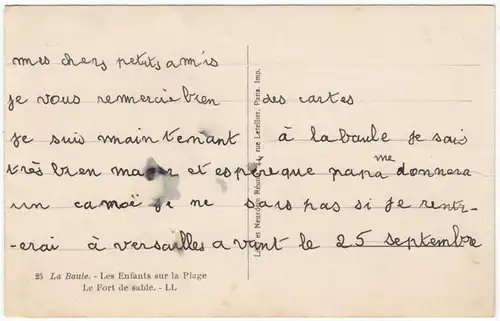 mes chers petits amis
je vous remercie bien des cartes
je suis maintenant à la baule je sais
très bien nager et espère que papa me donnera
un camoë je ne sais pas si je rentr-
-erai à versailles avant le 25 septembre
25 La Baule. - Les Enfants sur la Plage
Le Fort de sable. - LL
et Neurdein Réunis, 44, rue Letellier, Paris. Imp.